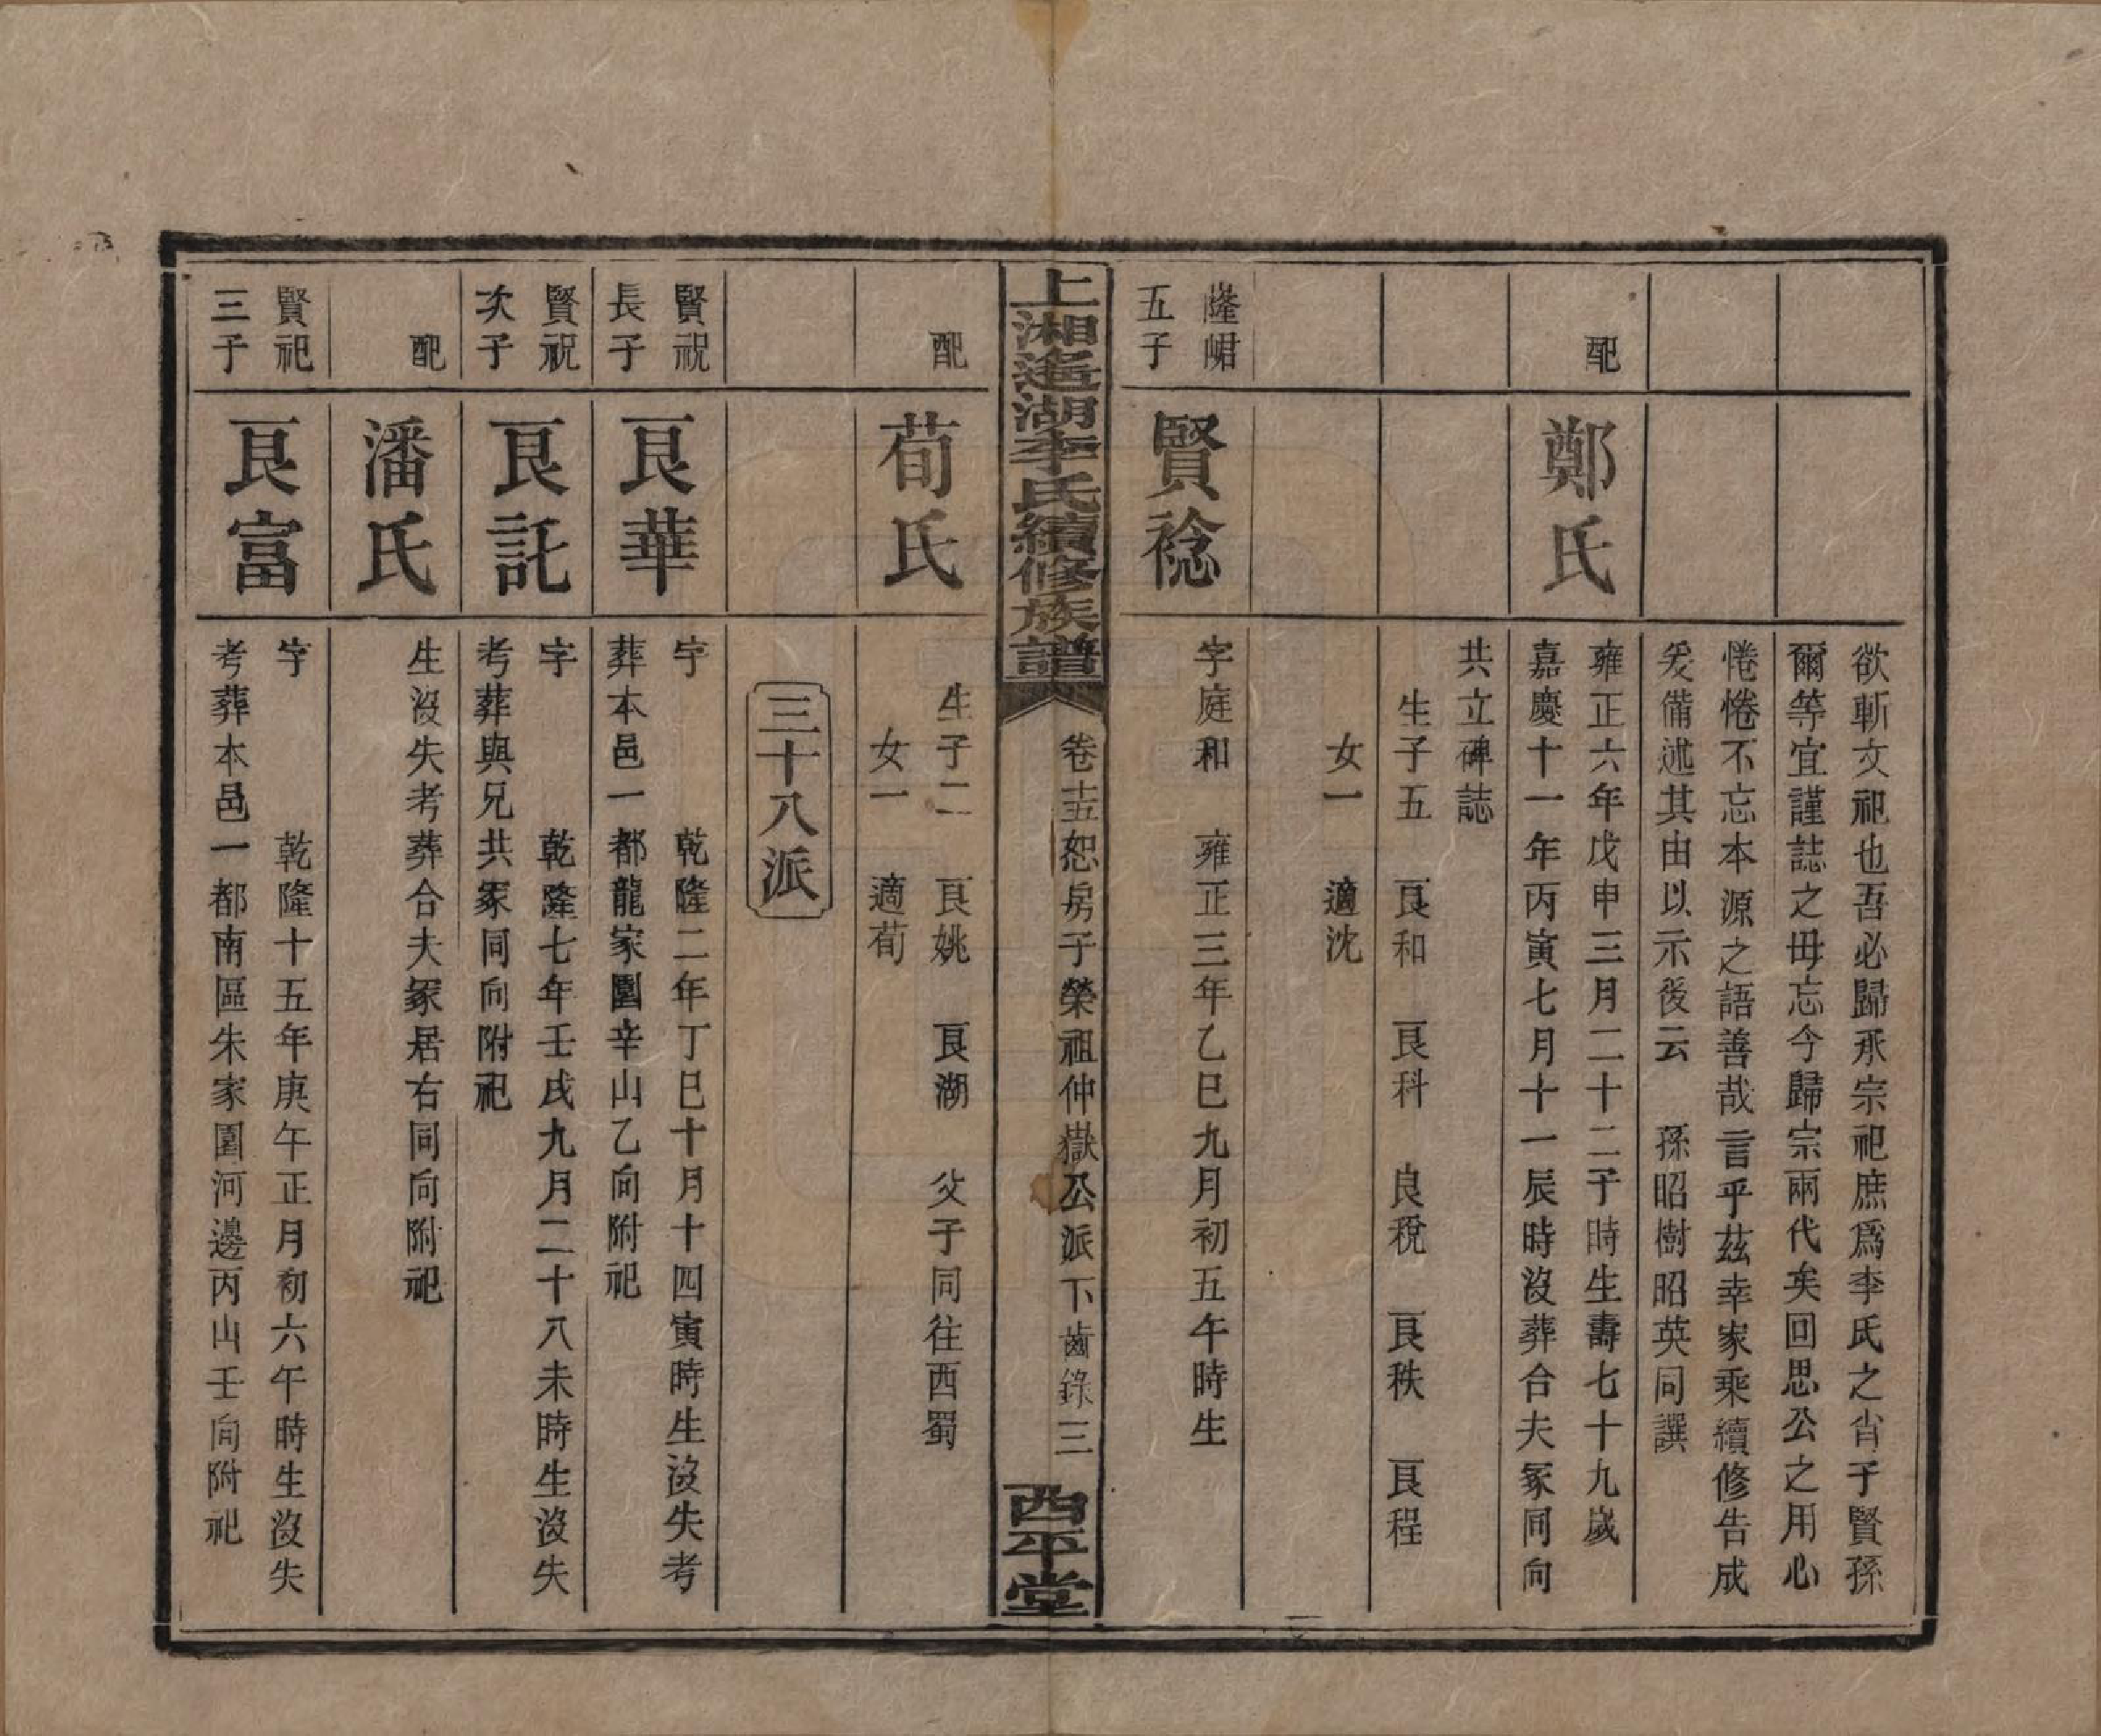 欲斬文祀也吾必歸承宗祀庶爲李氏之肖子賢孫
爾等宜謹誌之毋忘今歸宗兩代矣回思公之用心
惓惓不忘本源之語善哉言乎茲幸家乘續修告成
爰備述其由以示後云　孫昭樹昭英同譔
配
鄭氏
雍正六年戊申三月二十二子時生壽七十九歲
嘉慶十一年丙寅七月十一辰時沒葬合夫冢同向
共立碑誌
生子五　艮和　艮科　良稅　艮秩　艮程
女一　適沈
隆峮
五子
賢稔
字庭和　雍正三年乙巳九月初五午時生
上湘遙湖李氏續修族譜
卷十五恕房子榮祖仲嶽公派下齒錄三
西平堂
配
荀氏
生子二　艮姚　艮湖　父子同往西蜀
女一　適荀
三十八派
賢祝
長子
艮華
字　乾隆二年丁巳十月十四寅時生沒失考
葬本邑一都龍家園辛山乙向附祀
賢祝
次子
艮託
字　乾隆七年壬戌九月二十八未時生沒失
考葬與兄共冢同向附祀
配
潘氏
生沒失考葬合夫冢居右同向附祀
賢祀
三子
艮富
字　乾隆十五年庚午正月初六午時生沒失
考葬本邑一都南區朱家園河邊丙山壬向附祀